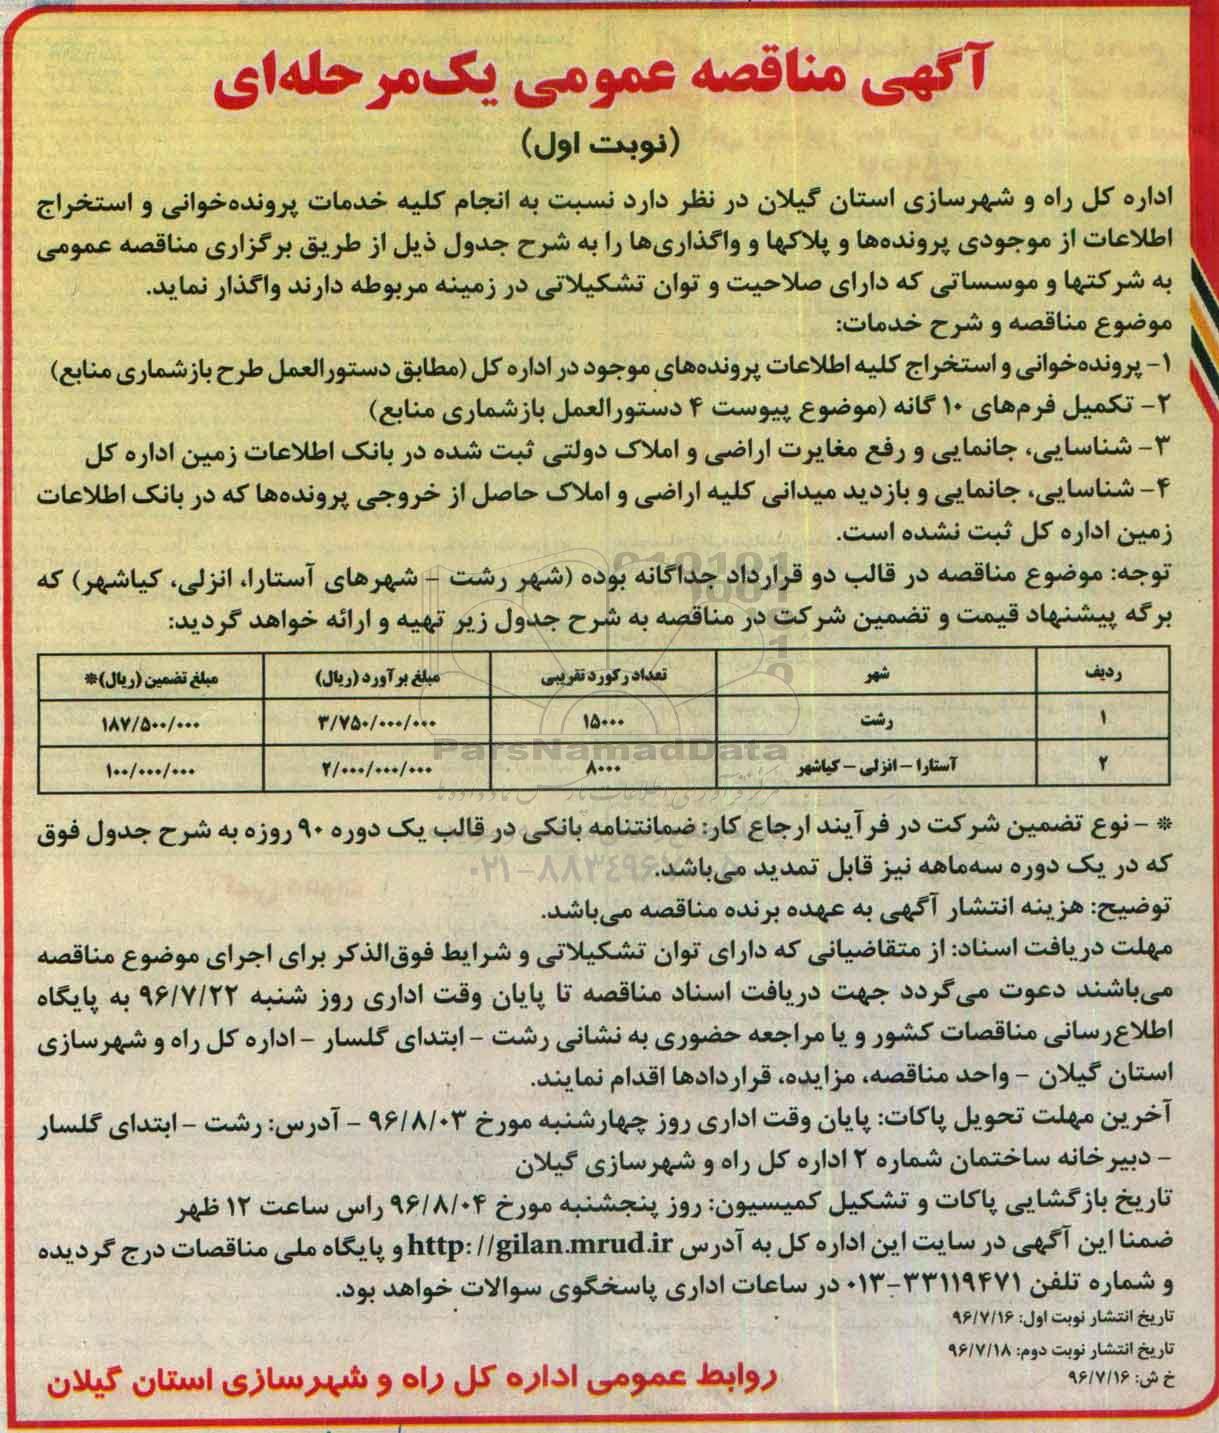 آگهی مناقصه عمومی یک‌مرحله‌ای
(نوبت اول)
اداره کل راه و شهرسازی استان گیلان در نظر دارد نسبت به انجام کلیه خدمات پرونده‌خوانی و استخراج
اطلاعات از موجودی پرونده‌ها و پلاکها و واگذاری‌ها را به شرح جدول ذیل از طریق برگزاری مناقصه عمومی
به شرکتها و موسساتی که دارای صلاحیت و توان تشکیلاتی در زمینه مربوطه دارند واگذار نماید.
موضوع مناقصه و شرح خدمات:
۱- پرونده‌خوانی و استخراج کلیه اطلاعات پرونده‌های موجود در اداره کل (مطابق دستورالعمل طرح بازشماری منابع)
۲- تکمیل فرم‌های ۱۰ گانه (موضوع پیوست ۴ دستورالعمل بازشماری منابع)
۳- شناسایی، جانمایی و رفع مغایرت اراضی و املاک دولتی ثبت شده در بانک اطلاعات زمین اداره کل
۴- شناسایی، جانمایی و بازدید میدانی کلیه اراضی و املاک حاصل از خروجی پرونده‌ها که در بانک اطلاعات
زمین اداره کل ثبت نشده است.
توجه: موضوع مناقصه در قالب دو قرارداد جداگانه بوده (شهر رشت - شهرهای آستارا، انزلی، کیاشهر) که
برگه پیشنهاد قیمت و تضمین شرکت در مناقصه به شرح جدول زیر تهیه و ارائه خواهد گردید:
ردیف شهر تعداد رکورد تقریبی مبلغ برآورد (ریال) مبلغ تضمین (ریال)*
۱ رشت ۱۵۰۰۰ ۳/۷۵۰/۰۰۰/۰۰۰ ۱۸۷/۵۰۰/۰۰۰
۲ آستارا - انزلی - کیاشهر ۸۰۰۰ ۲/۰۰۰/۰۰۰/۰۰۰ ۱۰۰/۰۰۰/۰۰۰
* - نوع تضمین شرکت در فرآیند ارجاع کار: ضمانتنامه بانکی در قالب یک دوره ۹۰ روزه به شرح جدول فوق
که در یک دوره سه‌ماهه نیز قابل تمدید می‌باشد.
توضیح: هزینه انتشار آگهی به عهده برنده مناقصه می‌باشد.
مهلت دریافت اسناد: از متقاضیانی که دارای توان تشکیلاتی و شرایط فوق‌الذکر برای اجرای موضوع مناقصه
می‌باشند دعوت می‌گردد جهت دریافت اسناد مناقصه تا پایان وقت اداری روز شنبه ۹۶/۷/۲۲ به پایگاه
اطلاع‌رسانی مناقصات کشور و یا مراجعه حضوری به نشانی رشت - ابتدای گلسار - اداره کل راه و شهرسازی
استان گیلان - واحد مناقصه، مزایده، قراردادها اقدام نمایند.
آخرین مهلت تحویل پاکات: پایان وقت اداری روز چهارشنبه مورخ ۹۶/۸/۰۳ - آدرس: رشت - ابتدای گلسار
- دبیرخانه ساختمان شماره ۲ اداره کل راه و شهرسازی گیلان
تاریخ بازگشایی پاکات و تشکیل کمیسیون: روز پنجشنبه مورخ ۹۶/۸/۰۴ راس ساعت ۱۲ ظهر
ضمنا این آگهی در سایت این اداره کل به آدرس http://gilan.mrud.ir و پایگاه ملی مناقصات درج گردیده
و شماره تلفن ۳۳۱۱۹۴۷۱-۰۱۳ در ساعات اداری پاسخگوی سوالات خواهد بود.
تاریخ انتشار نوبت اول: ۹۶/۷/۱۶
تاریخ انتشار نوبت دوم: ۹۶/۷/۱۸
خ ش: ۹۶/۷/۱۶
روابط عمومی اداره کل راه و شهرسازی استان گیلان
ParsNamadData